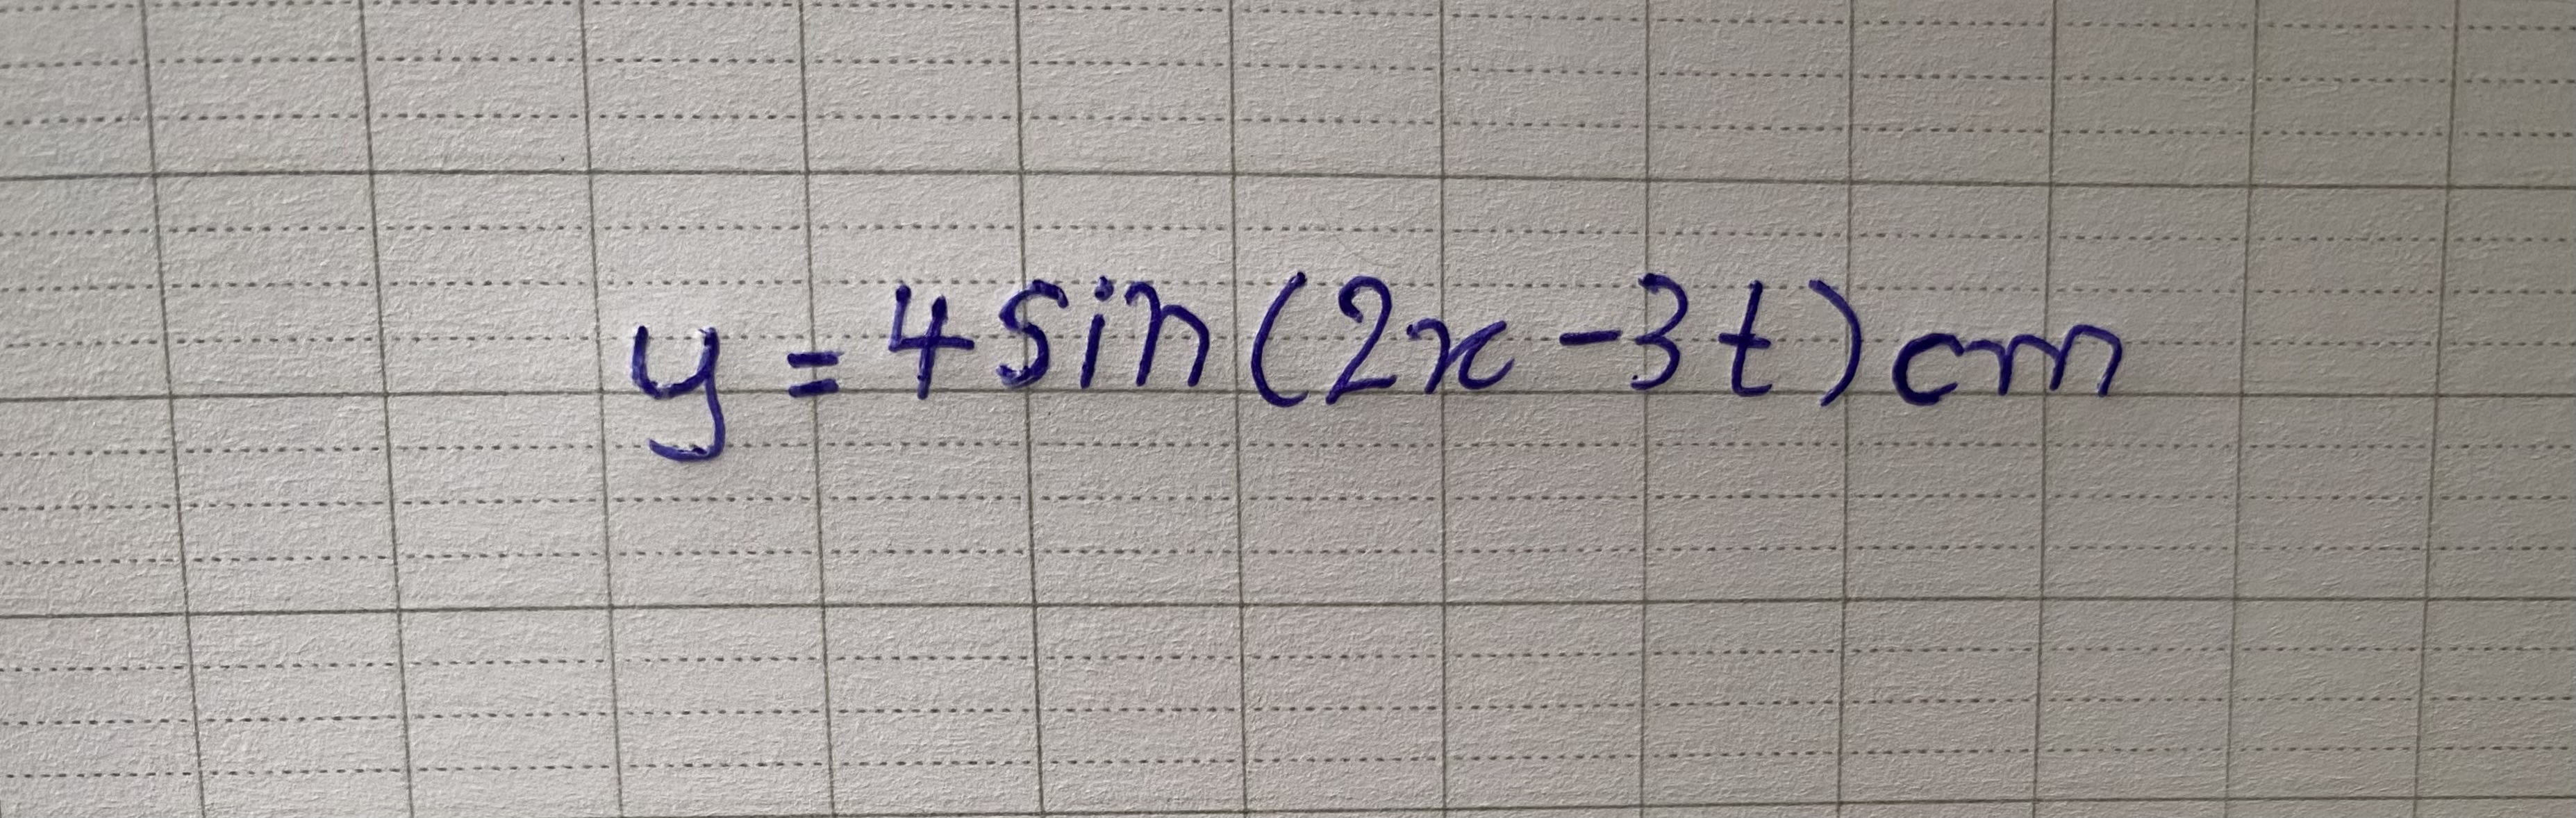 y = 4 sin (2x - 3t) cm